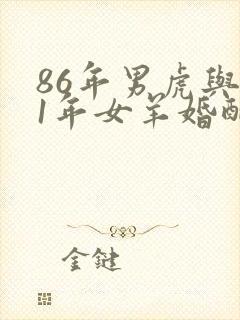 86年男虎與
1年女羊婚配
金鍵